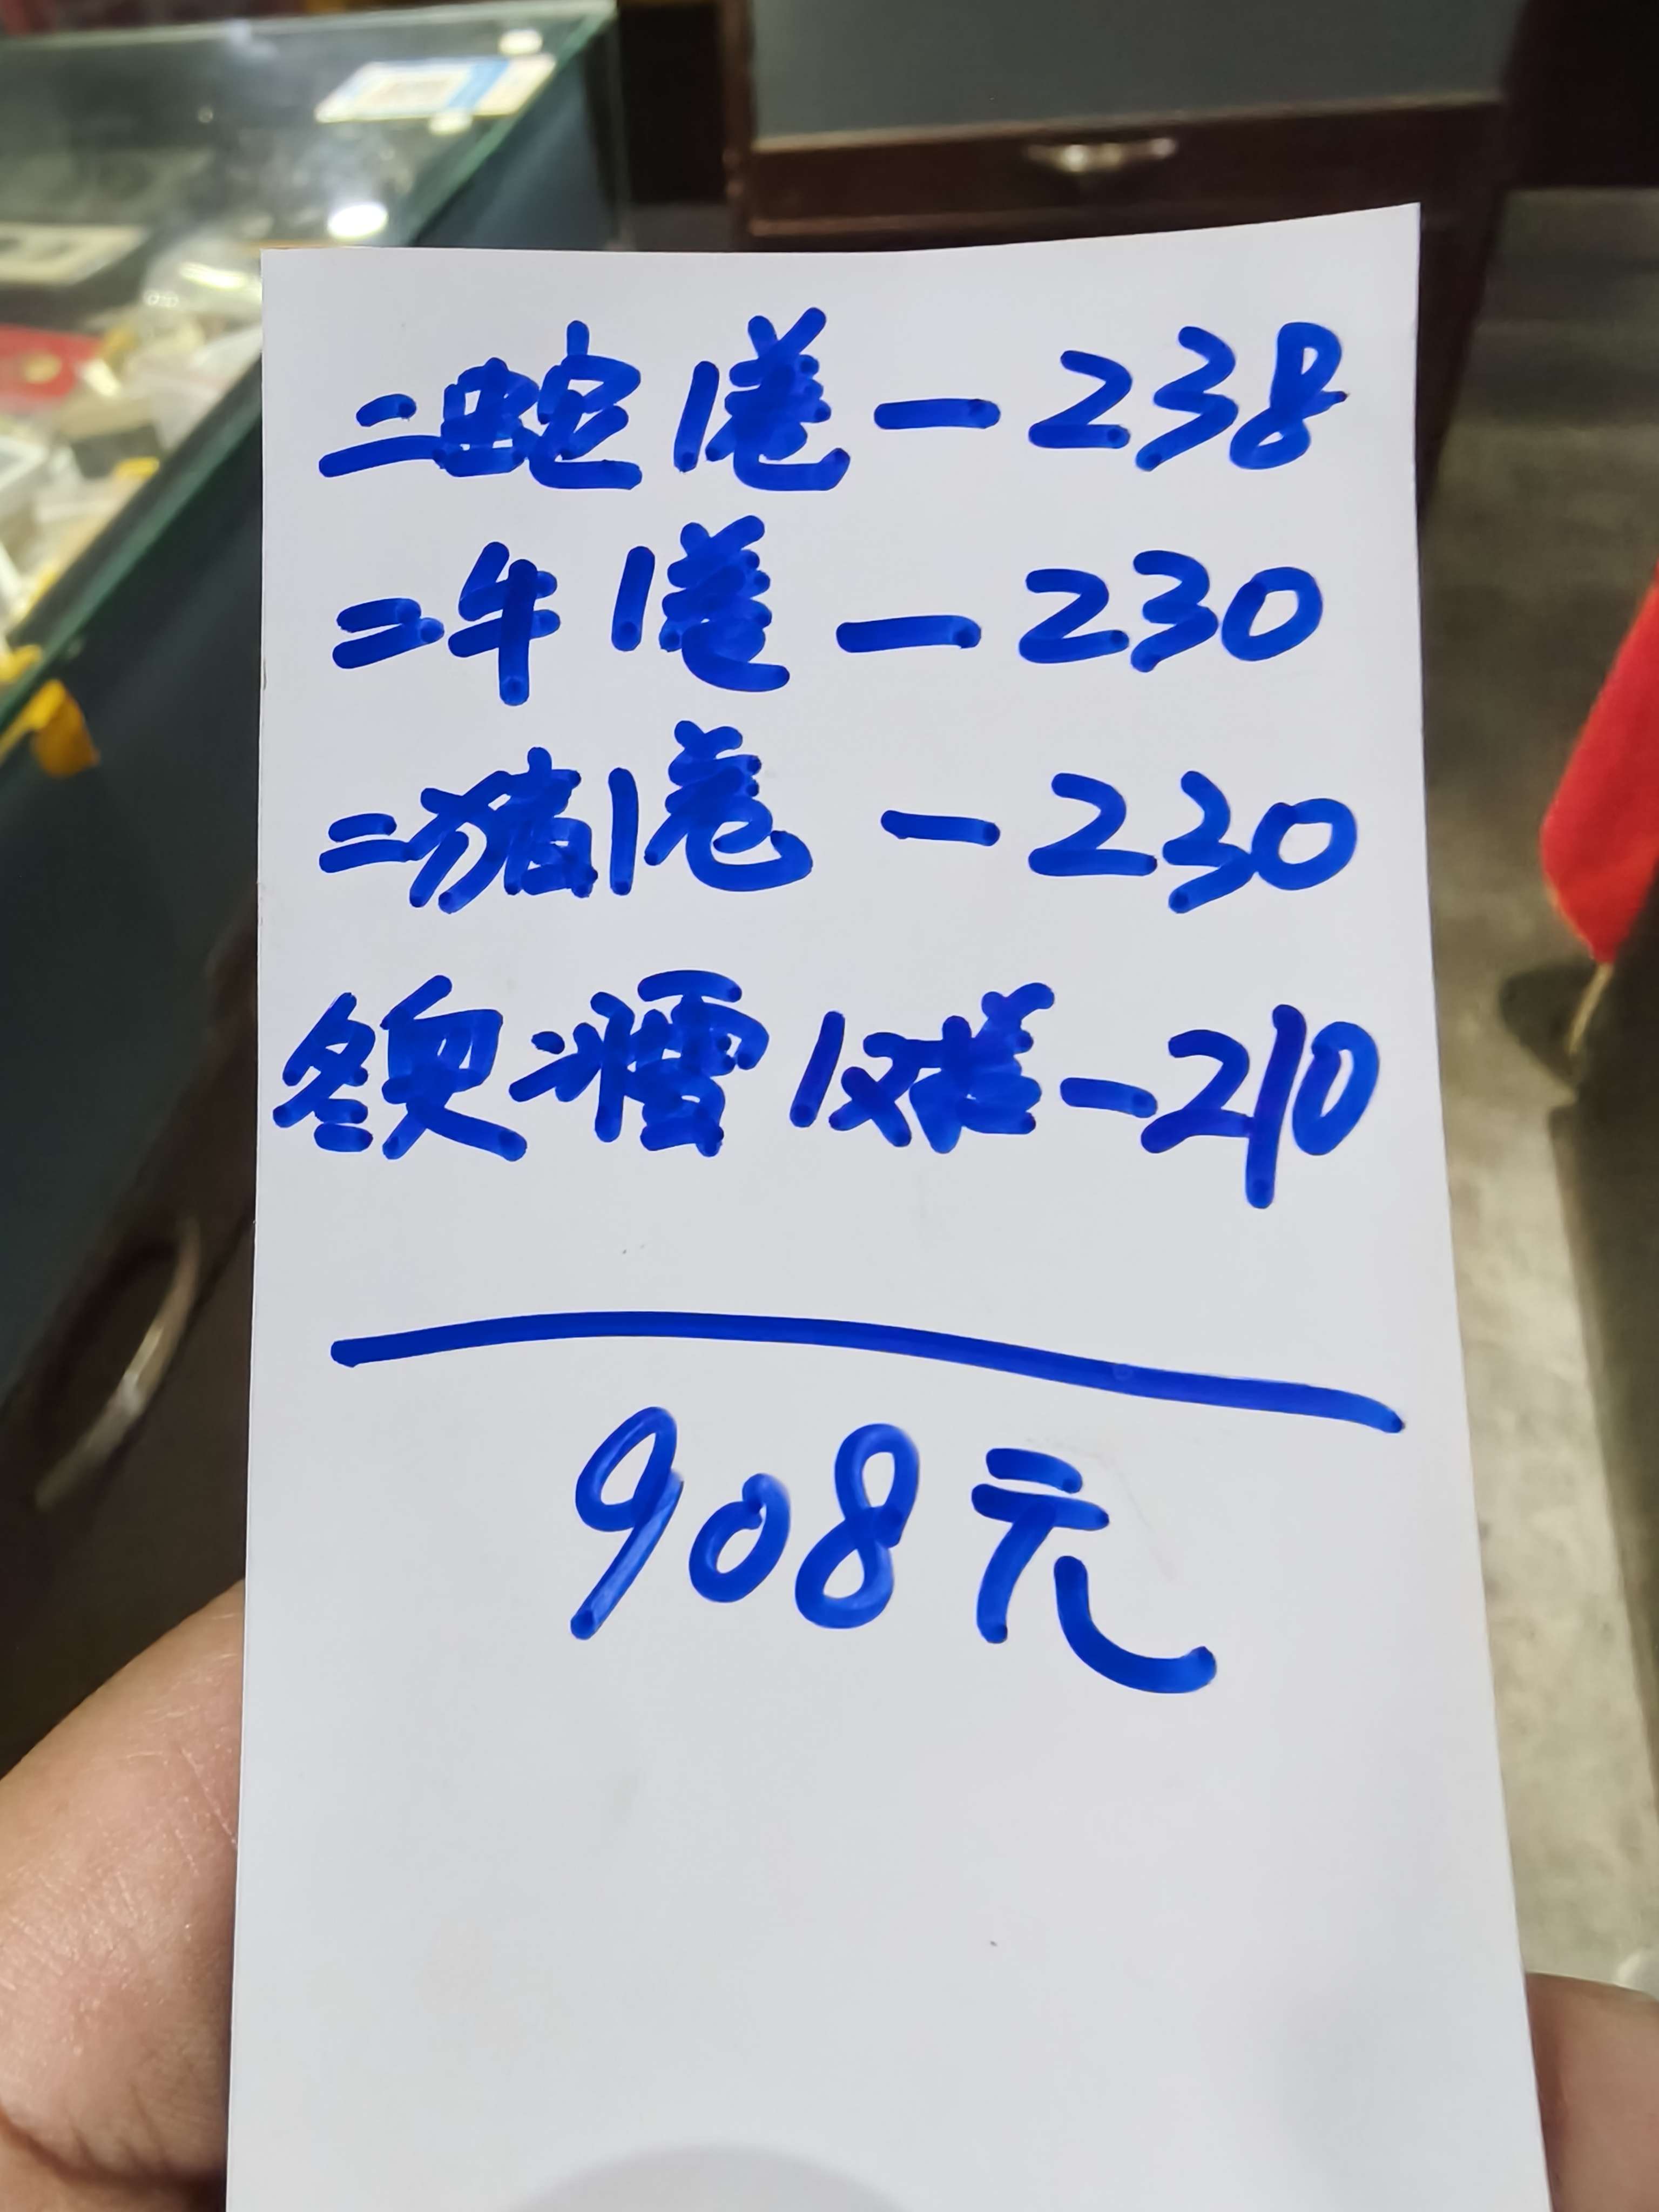 二蛇1卷－238
二牛1卷－230
二猪1卷－230
冬奥冰雪1双卷－210
908元